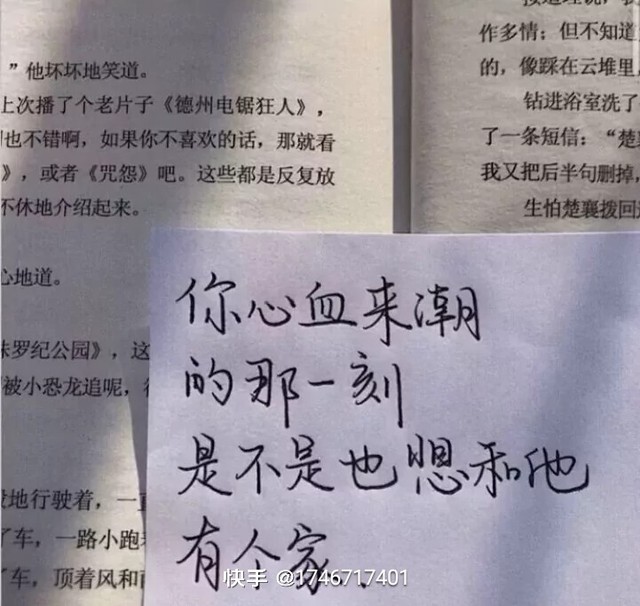 ”他坏坏地笑道。
上次播了个老片子《德州电锯狂人》，
也不错啊，如果你不喜欢的话，那就看
》，或者《咒怨》吧。这些都是反复放
不休地介绍起来。
心地道。
朱罗纪公园》，这
被小恐龙追呢，
地行驶着，一直
了车，一路小跑
了车，顶着风和
作多情；但不知道
的，像踩在云堆里
钻进浴室洗了
了一条短信：“楚
我又把后半句删掉，
生怕楚襄拨回
你心血来潮
的那一刻
是不是也想和他
有个家．
快手 @1746717401